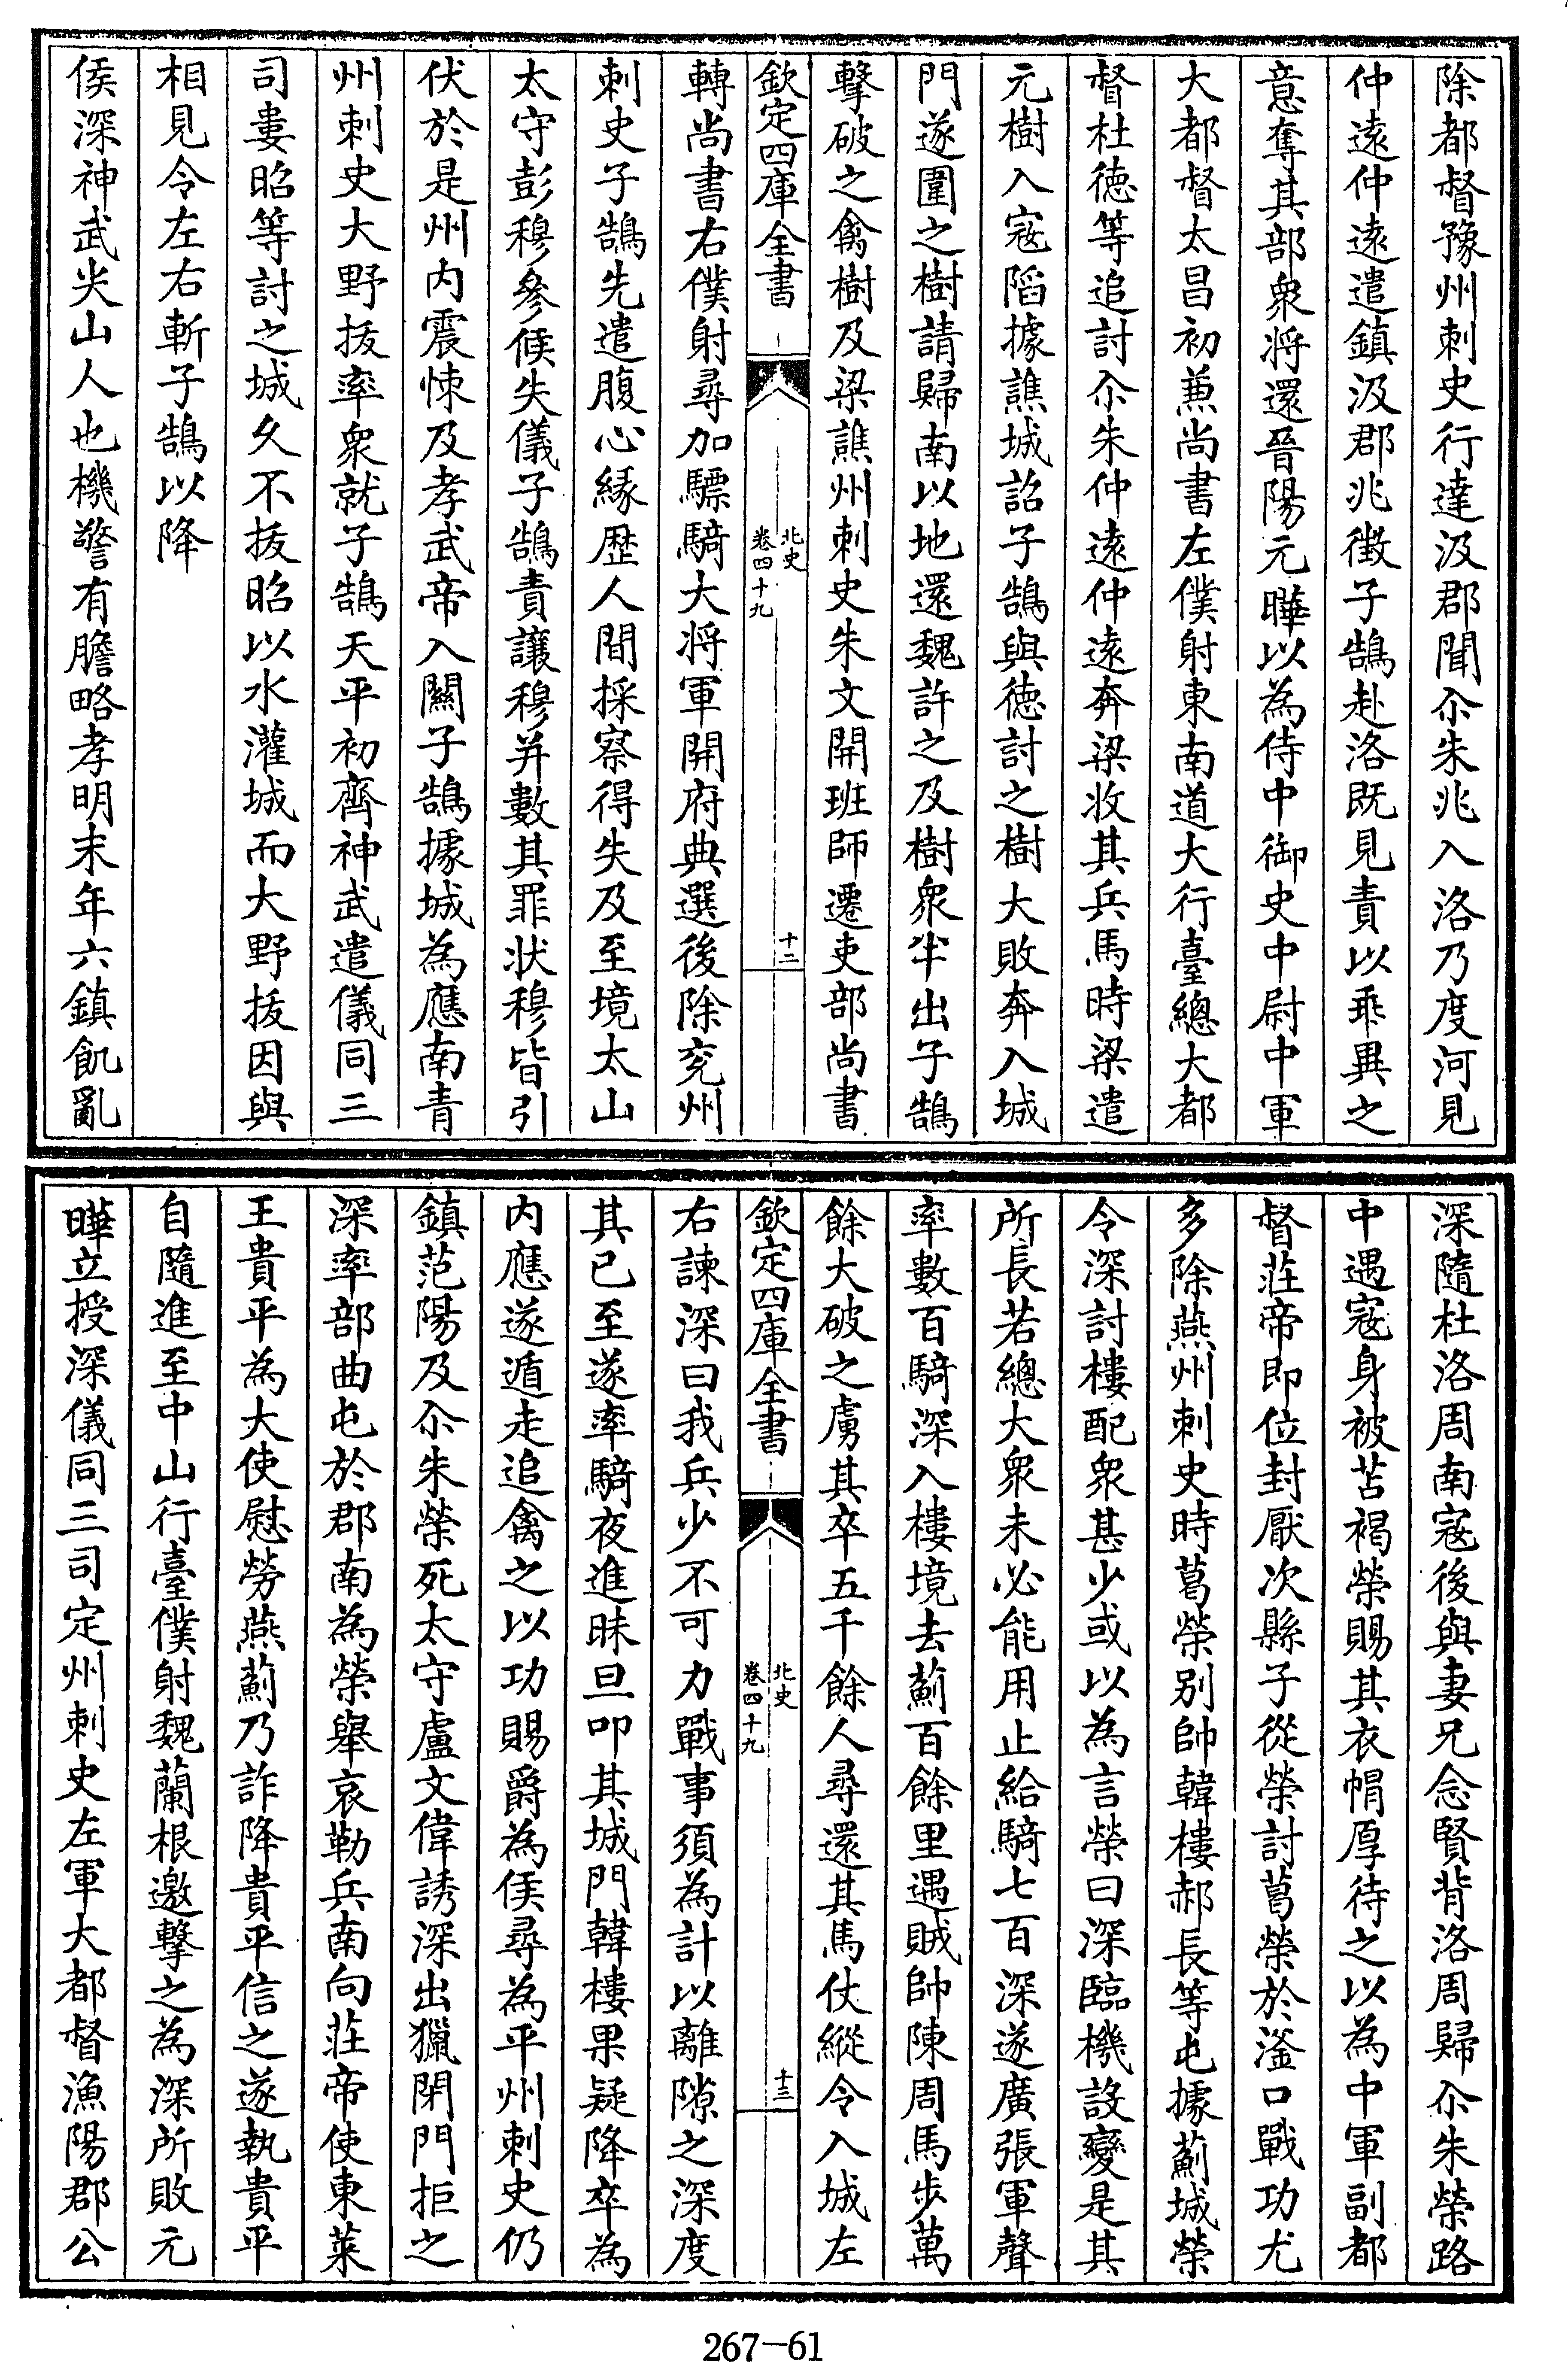 除都督豫州刺史行達汲郡聞尒朱兆入洛乃度河見
仲遠仲遠遣鎮汲郡兆徵子鵠赴洛既見責以乖異之
意奪其部衆将還晉陽元曄以為侍中御史中尉中軍
大都督太昌初兼尚書左僕射東南道大行臺總大都
督杜徳等追討尒朱仲遠仲遠奔梁收其兵馬時梁遣
元樹入寇䧟據譙城詔子鵠與徳討之樹大敗奔入城
門遂圍之樹請歸南以地還魏許之及樹衆半出子鵠
擊破之禽樹及梁譙州刺史朱文開班師遷吏部尚書
欽定四庫全書
北史
卷四十九
十二
轉尚書右僕射尋加驃騎大将軍開府典選後除兖州
刺史子鵠先遣腹心縁歴人間採察得失及至境太山
太守彭穆參候失儀子鵠責讓穆并數其罪状穆皆引
伏於是州内震悚及孝武帝入關子鵠據城為應南青
州刺史大野拔率衆就子鵠天平初齊神武遣儀同三
司婁昭等討之城久不拔昭以水灌城而大野拔因與
相見令左右斬子鵠以降
侯深神武尖山人也機警有膽略孝明末年六鎮飢亂
深隨杜洛周南寇後與妻兄念賢背洛周歸尒朱榮路
中遇寇身被苫褐榮賜其衣帽厚待之以為中軍副都
督莊帝即位封厭次縣子從榮討葛榮於滏口戰功尤
多除燕州刺史時葛榮别帥韓樓郝長等屯據薊城榮
令深討樓配衆甚少或以為言榮曰深臨機設變是其
所長若總大衆未必能用止給騎七百深遂廣張軍聲
率數百騎深入樓境去薊百餘里遇賊帥陳周馬步萬
餘大破之虜其卒五千餘人尋還其馬仗縱令入城左
欽定四庫全書
北史
卷四十九
十三
右諫深曰我兵少不可力戰事須為計以離隙之深度
其已至遂率騎夜進昧旦叩其城門韓樓果疑降卒為
内應遂遁走追禽之以功賜爵為侯尋為平州刺史仍
鎮范陽及尒朱榮死太守盧文偉誘深出獵閉門拒之
深率部曲屯於郡南為榮舉哀勒兵南向莊帝使東萊
王貴平為大使慰勞燕薊乃詐降貴平信之遂執貴平
自隨進至中山行臺僕射魏蘭根邀擊之為深所敗元
曄立授深儀同三司定州刺史左軍大都督漁陽郡公
267-61